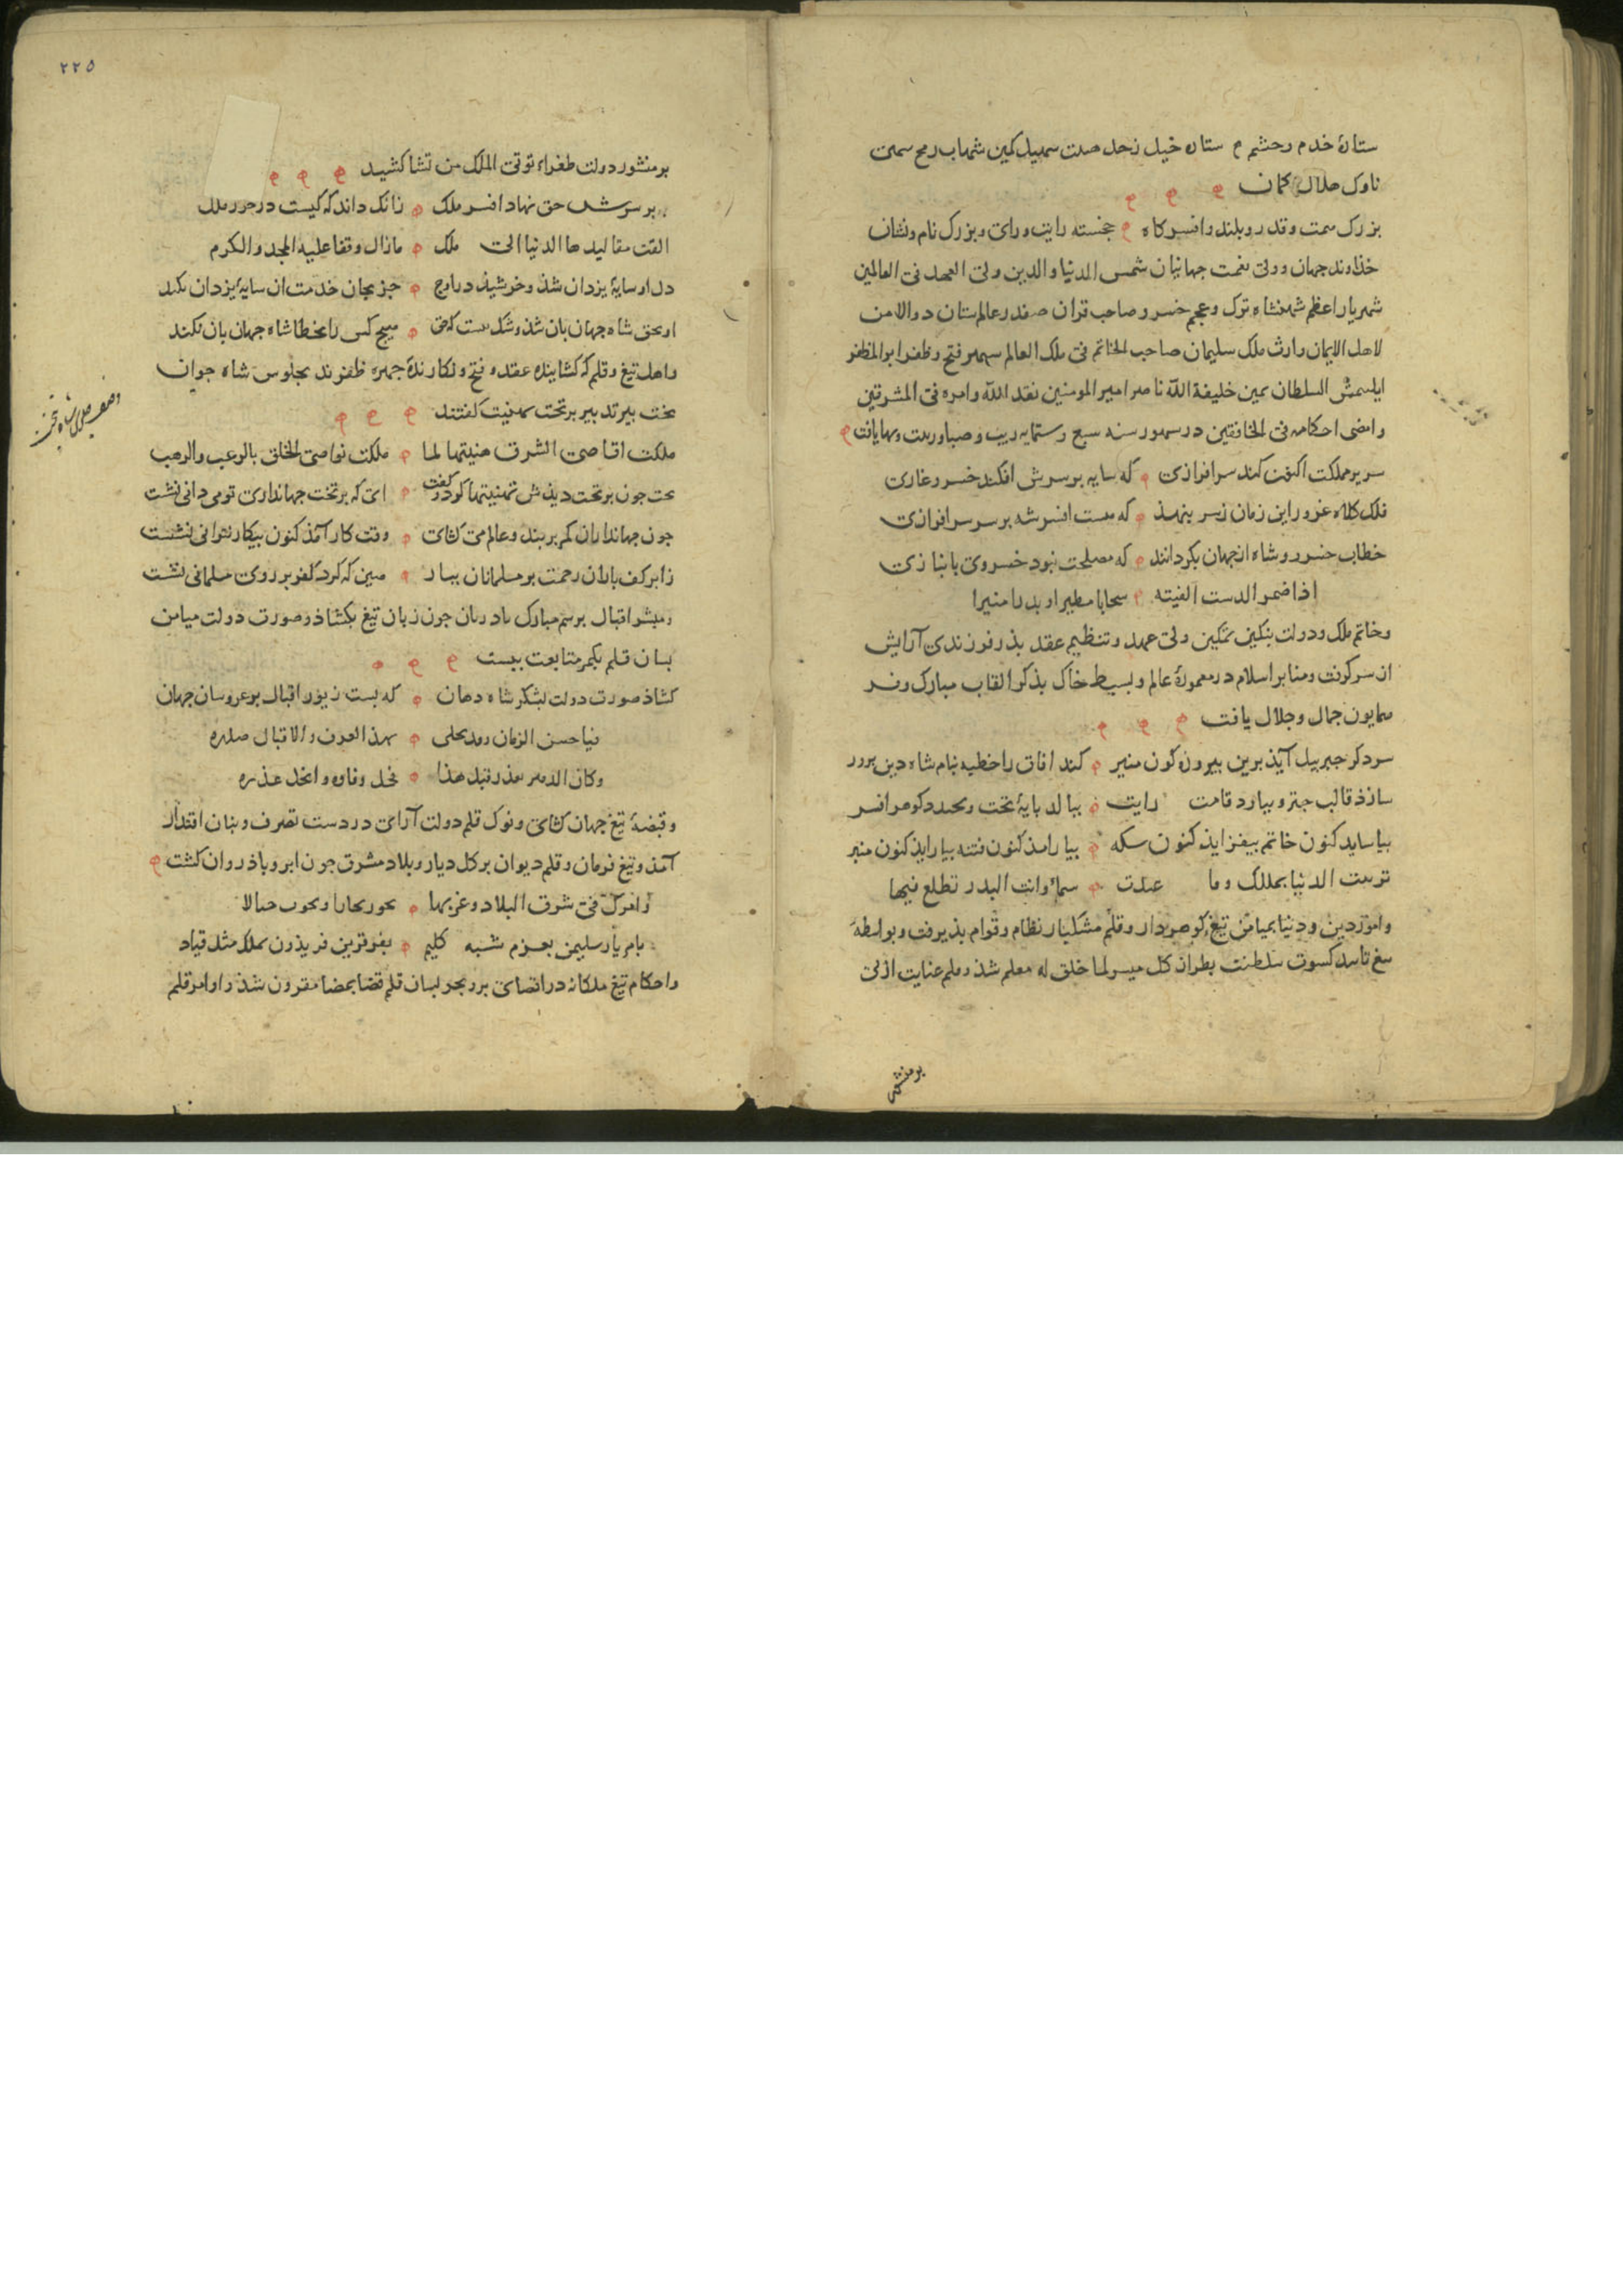 ستارۀ خدم و حشم م ستاره خیل زحل صلت سهیل کمین شهاب رمح سمن
ناوک هلال کمان
بزرک همت و قدر و بلند و افسر کاه خجسته رایت و رای و بزرک نام و نشان
خذاوند جهان و ولی نعمت جهانیان شمس الدنیا والدین ولی العهد فی العالمین
شهریار اعظم شهنشاه ترک و عجم خسرو صاحب قران صفدر عالم ستان ذو الامن
لاهل الایمان وارث ملک سلیمان صاحب الخاتم فی ملک العالم سپهر فتح و ظفر ابو المظفر
ایلتمش السلطان یمین خلیفة الله ناصر امیر المومنین نفذ الله وامره فی المشرقین
وامضی احکامه فی الخافقین در سنه سبع و ستمایه زیب و بها یافت
سریر مملکت اکنون کند سرافرازی که سایه بر سرش افکند خسرو غازی
فلک کلاه غرور این زمان ز سر بنهذ که هست افسر شه بر سر سرافرازی
خطاب خسرو و شاه از جهان بکردانند که مصلحت نبود خسروی بانبازی
اذا ضمر الدست الفیته سحابا مطیرا و بدرا منیرا
و خاتم ملک و دولت بنکین تمکین ولی عهد و تنظیم عقد بذر فرزندی آرایش
از سر کرفت و منابر اسلام در معمورۀ عالم و بسیط خاک بذکر القاب مبارک و فر
همایون جمال و جلال یافت
سزد کر جبرییل آیذ برین بیروزه کون منبر کند افاق را خطبه بنام شاه دین برور
سازذ قالب چتر و بیارد قامت رایت ببالد بایۀ تخت و بخندد کوهر افسر
بیاساید کنون خاتم بیفزایذ کنون سکه بیارامذ کنون فتنه بیارایذ کنون منبر
تزینت الدنیا بملکک وما عدت سماء وانت البدر تطلع فیها
و امور دین و دنیا بمیامن تیغ کوهردار و قلم مشکبار نظام و قوام بذیرفت و بواسطۀ
تیغ کسوت سلطنت بطراز کل میسر لما خلق له معلم شذ و قلم عنایت ازلی
برمنشور
۲۲۵
بر منشور دولت طغراء توتی الملک من تشا کشید
بر سرش حق نهاد افسر ملک زانک داند که کیست درخور ملک
القت مقالیدها الدنیا الی ملک مازال وقفا علیه المجد والکرم
دل او سایۀ یزدان شذ و خرشیذ در اوج جز بجان خدمت ان سایۀ یزدان نکند
او بحق شاه جهان بان شذ و شک نیست که حق هیچ کس را بخطا شاه جهان بان نکند
و اهل تیغ و قلم که کشایندۀ عقده فتح و نکارندۀ جهرۀ ظفرند بجلوس شاه جوان
بخت بیر تدبیر بر تخت تهنیت کفتند
ملکت اقاصی الشرق هنیتها لما ملکت نواصی الخلق بالرعب والرهب
بخت جون بر تخت دیذش تهنیتها کرد و کفت ای که بر تخت جهانداری تو می دانی نشست
جون جهانداران کمر بر بند و عالم می کشای وقت کار آمذ کنون بیکار نتوانی نشست
ز ابر کف باران رحمت بر مسلمانان ببار هین که کرد کفر بر روی مسلمانی نشست
و مبشر اقبال برسم مبارک باد زبان جون زبان تیغ بکشاذ و صورت دولت میامن
بسان قلم بکمر متابعت ببست
کشاذ صورت دولت بشکر شاه دهان که بست زیور اقبال بر عروسان جهان
فیا حسن الزمان بهذا العدف والاقبال صدره
وکان الدهر یعذر قبل هذا فحل وفاوه وانحل عذره
و قبضۀ تیغ جهان کشای و نوک قلم دولت آرای در دست تصرف و بنان اقتدار
آمذ و تیغ فرمان و قلم دیوان بر کل دیار و بلاد مشرق جون ابر و باذ روان کشت
وامرک فی شرق البلاد وغربها
بامر یار سلیمن بعزم شبه کلیم بفر قرین فریذون بملک مثل قباد
و احکام تیغ ملکانه در اقصای بر و بحر بسان قلم قضا بمضا مقرون شذ و اوامر قلم